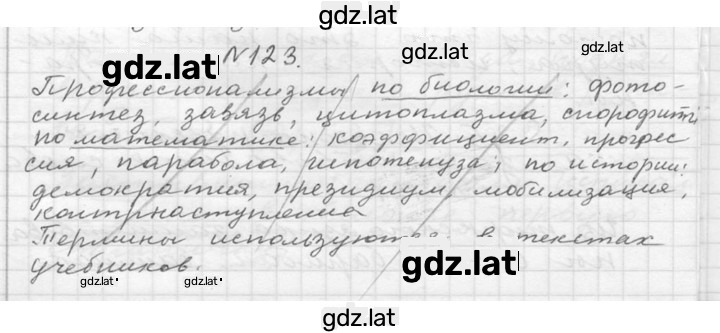 gdz.lat
№123.
gdz.lat
gdz.lat
gdz.lat
Профессионализмы по биологии: фото-
синтез, завязь, цитоплазма, спорофит;
по математике: коэффициент, прогрес-
сия, парабола, гипотенуза; по истории:
демократия, президиум, мобилизация,
контрнаступление
Термины используются в текстах
учебников.
gdz.lat
gdz.lat
gdz.lat
gdz.lat